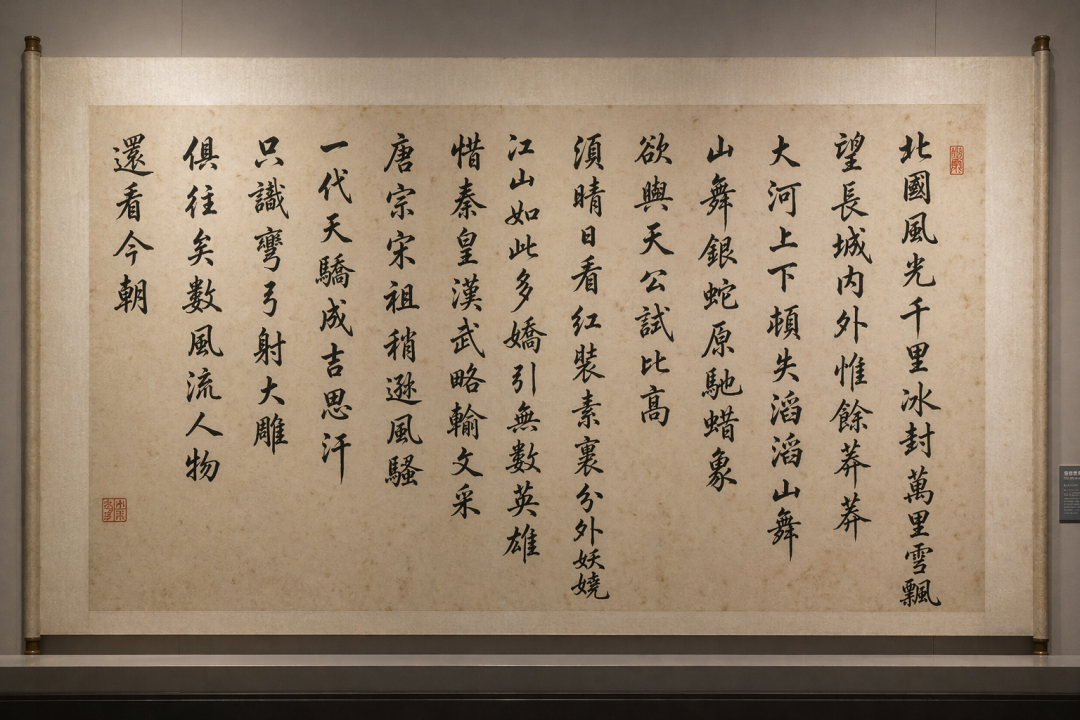 北國風光千里冰封萬里雪飄
望長城内外惟餘莽莽
大河上下頓失滔滔山舞
山舞銀蛇原馳蜡象
欲與天公試比高
須晴日看红裝素裹分外妖嬈
江山如此多嬌引無數英雄
惜秦皇漢武略輸文采
唐宗宋祖稍遜風騷
一代天驕成吉思汗
只識彎弓射大雕
俱往矣數風流人物
還看今朝